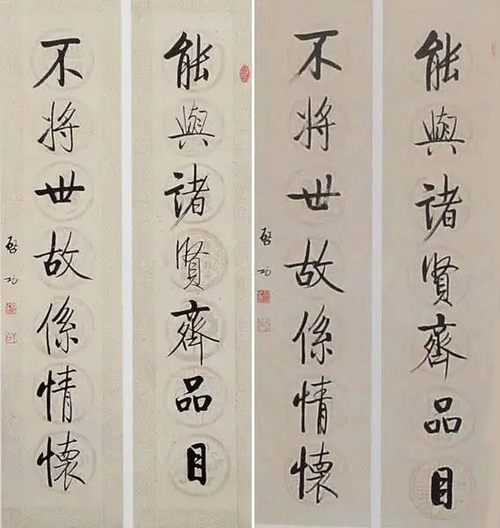 能與諸賢齊品目
不将世故係情懷
啓功
能與諸賢齊品目
不将世故係情懷
啓功